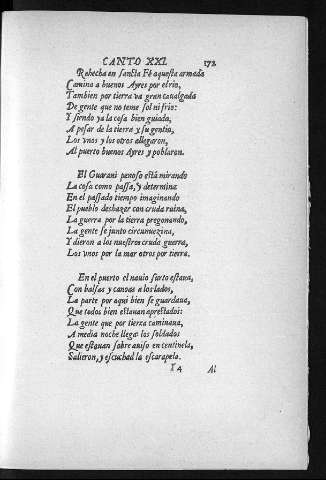 CANTO XXI. 172
Rehecha en sancta Fè aquesta armada
Camino a buenos Ayres por el rio,
Tambien por tierra va gran caualgada
De gente que no teme sol ni frio:
Y siendo ya la cosa bien guiada,
A pesar de la tierra y su gentio,
Los vnos y los otros allegaron,
Al puerto buenos Ayres y poblaron.
El Guarani penoso està mirando
La cosa como passa, y determina
En el passado tiempo imaginando
El pueblo deshazer con cruda ruina,
La guerra por la tierra pregonando,
La gente se junto circunuezina,
Y dieron a los nuestros cruda guerra,
Los vnos por la mar otros por tierra.
En el puerto el nauio surto estaua,
Con balsas y canoas a los lados,
La parte por aqui bien se guardaua,
Que todos bien estauan aprestados:
La gente que por tierra caminaua,
A media noche llega: los soldados
Que estauan sobre auiso en centinela,
Salieron, y escuchad la escarapela.
Y 4 Al